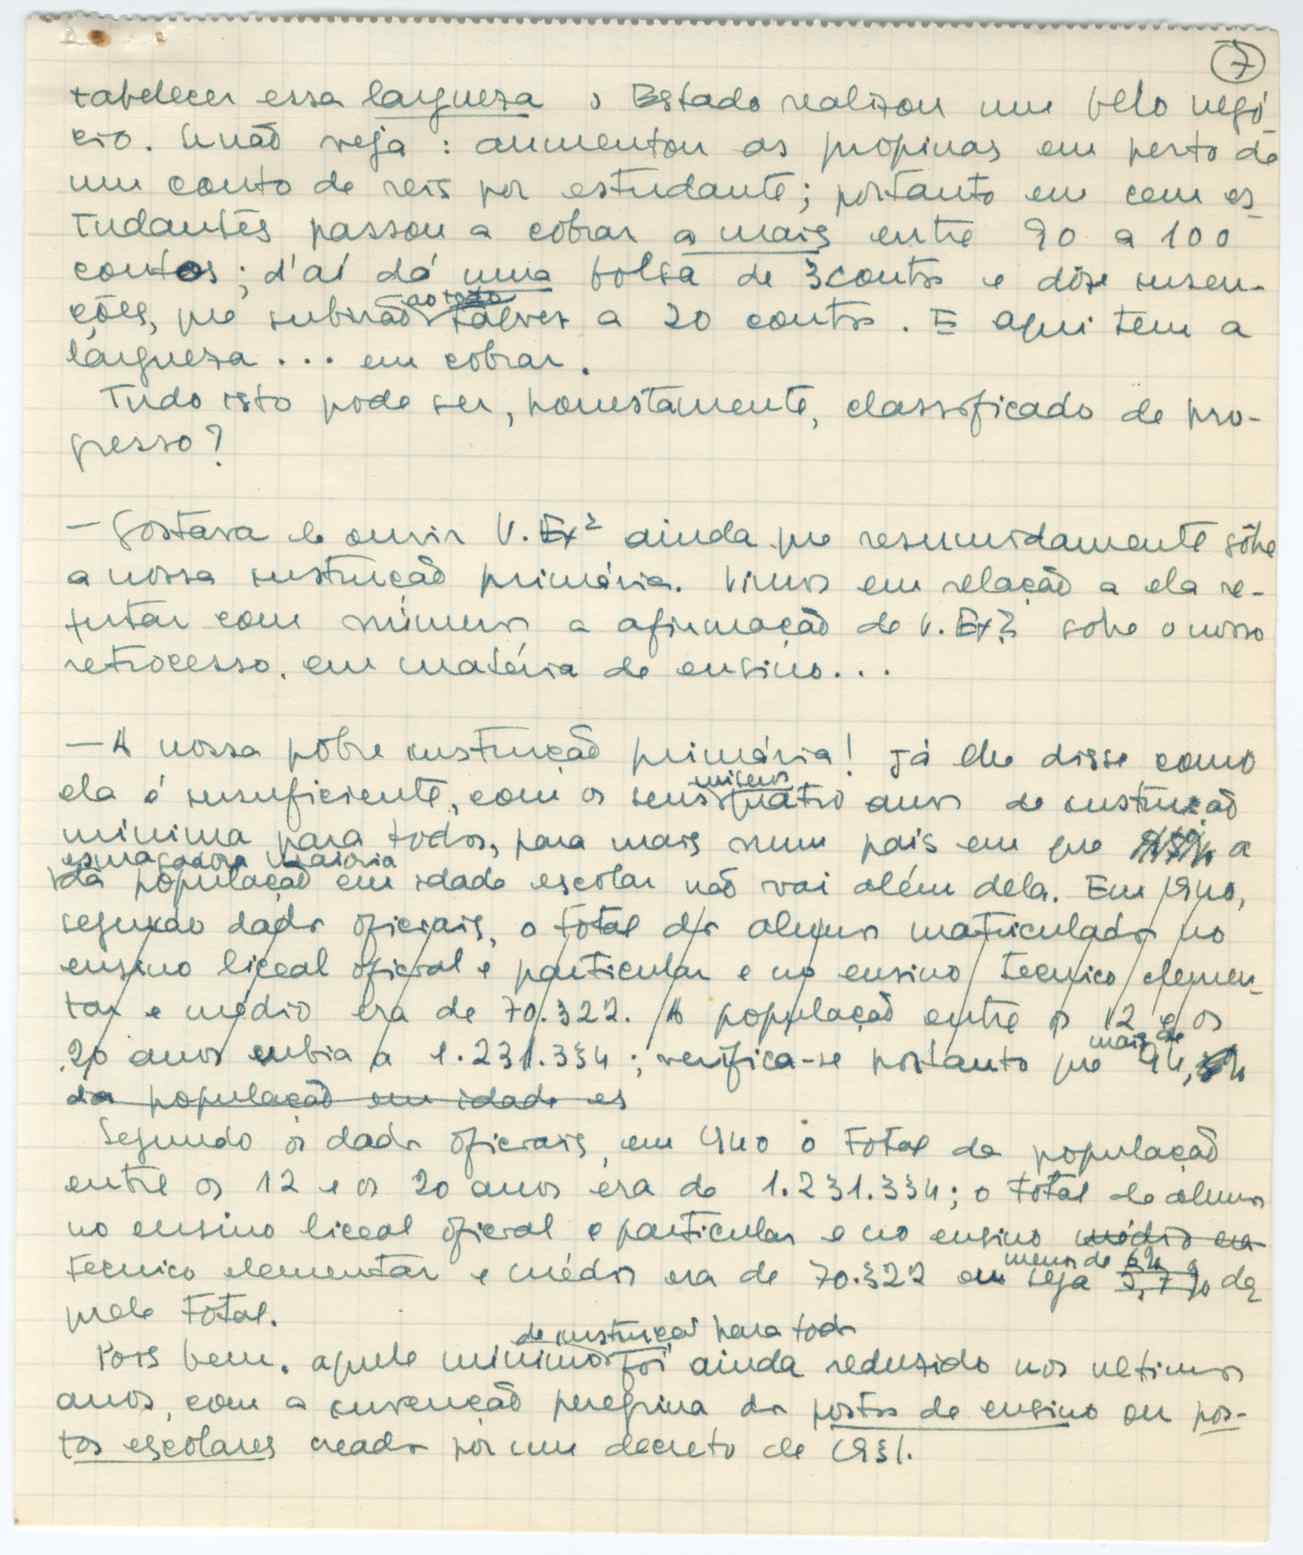 7
tabelecer essa largueza o Estado realizou um belo negó-
cio. Senão veja: aumentou as propinas em perto de
um conto de reis por estudante; portanto em cem es-
tudantes passou a cobrar a mais entre 90 a 100
contos; d'aí dá uma bolsa de 3 contos e dôze isen-
ao todo
ções, que subirão talvez a 20 contos. E aqui tem a
largueza... em cobrar.
Tudo isto pode ser, honestamente, classificado de pro-
gresso?
— Gostava de ouvir V. Exª ainda que resumidamente sôbre
a nossa instrução primária. Vimos em relação a ela re-
futar com números a afirmação de V. Exª sobre o nosso
retrocesso em matéria de ensino...
— A nossa pobre instrução primária! Já lhe disse como
míseros
ela é insuficiente, com os seus quatro anos de instrução
mínima para todos, para mais num país em que a
esmagadora maioria
da população em idade escolar não vai além dela. Em 1940,
segundo dados oficiais, o total dos alunos matriculados no
ensino liceal oficial e particular e no ensino tecnico elemen-
tar e médio era de 70.322. A população entre os 12 e os
20 anos subia a 1.231.334; verifica-se portanto que mais de 94,
da população em idade es
Segundo os dados oficiais, em 1940 o total da população
entre os 12 e os 20 anos era de 1.231.334; o total de alunos
no ensino liceal oficial e particular e no ensino médio era
menos de 6%
tecnico elementar e médio era de 70.322 ou seja 5,7% da-
quele total.
de instrução para todos
Pois bem, aquele mínimo foi ainda reduzido nos ultimos
anos, com a invenção peregrina dos postos de ensino ou pos-
tos escolares creados por um decreto de 1931.